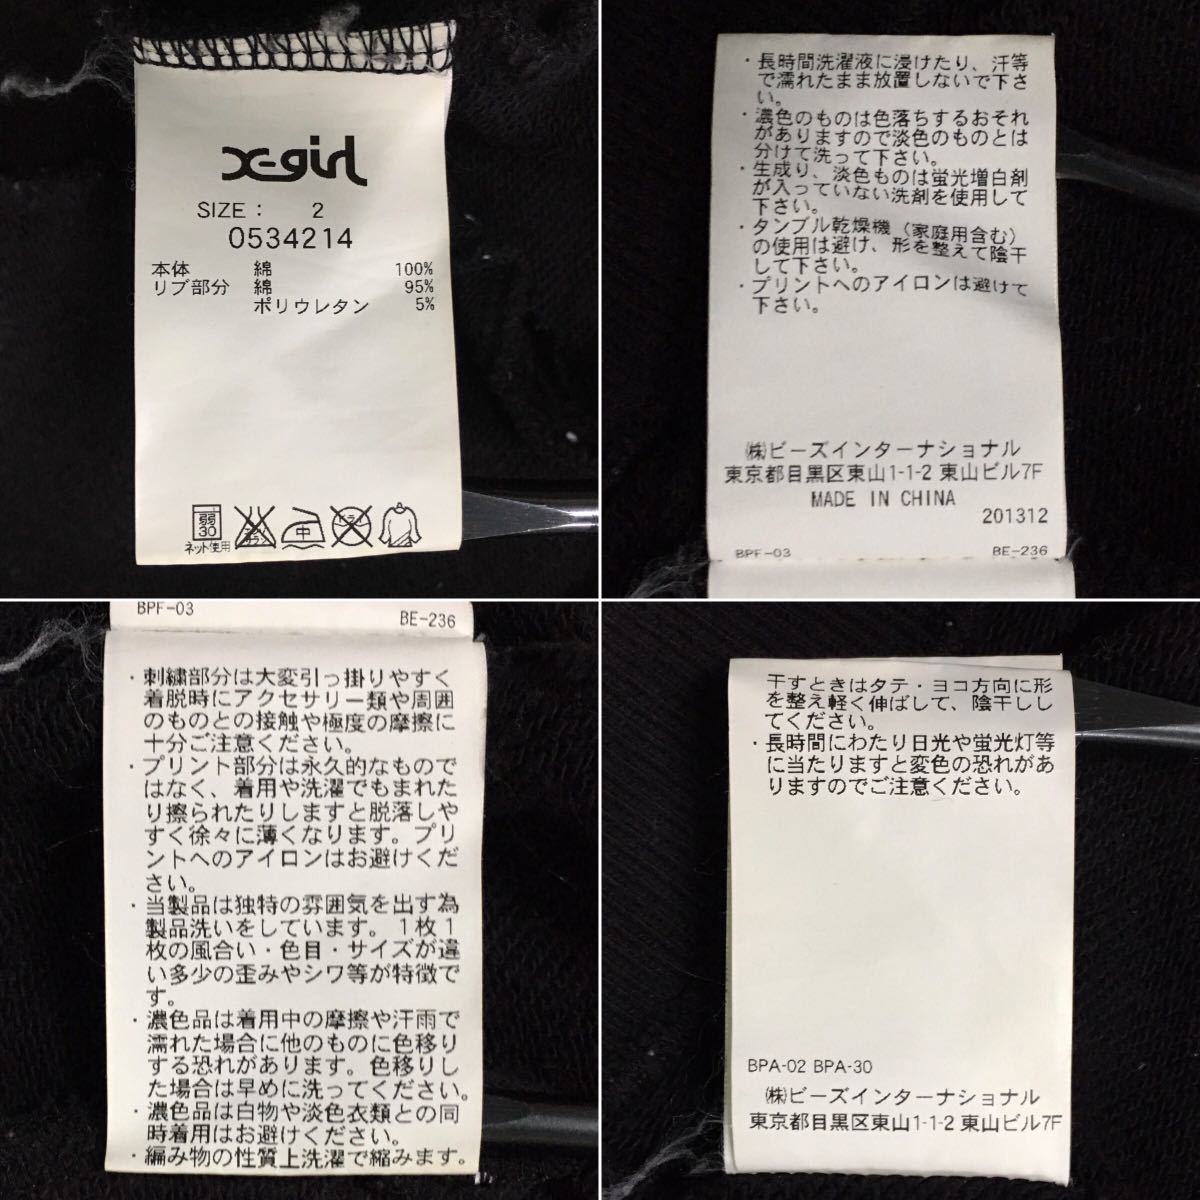 X-girl
SIZE : 2
0534214
本体 綿 100%
リブ部分 綿 95%
ポリウレタン 5%
弱
30
ネット使用
中
ドライ
・長時間洗濯液に浸けたり、汗等
で濡れたまま放置しないで下さ
い。
・濃色のものは色落ちするおそれ
がありますので淡色のものとは
分けて洗って下さい。
・生成り、淡色ものは蛍光増白剤
が入っていない洗剤を使用して
下さい。
・タンブル乾燥機（家庭用含む）
の使用は避け、形を整えて陰干
して下さい。
・プリントへのアイロンは避けて
下さい。
㈱ビーズインターナショナル
東京都目黒区東山1-1-2 東山ビル7F
MADE IN CHINA
201312
BPF-03 BE-236
BPF-03 BE-236
・刺繍部分は大変引っ掛りやすく
着脱時にアクセサリー類や周囲
のものとの接触や極度の摩擦に
十分ご注意ください。
・プリント部分は永久的なもので
はなく、着用や洗濯でもまれた
り擦られたりしますと脱落しや
すく徐々に薄くなります。プリ
ントへのアイロンはお避けくだ
さい。
・当製品は独特の雰囲気を出す為
製品洗いをしています。１枚１
枚の風合い・色目・サイズが違
い多少の歪みやシワ等が特徴で
す。
・濃色品は着用中の摩擦や汗雨で
濡れた場合に他のものに色移り
する恐れがあります。色移りし
た場合は早めに洗ってください。
・濃色品は白物や淡色衣類との同
時着用はお避けください。
・編み物の性質上洗濯で縮みます。
干すときはタテ・ヨコ方向に形
を整え軽く伸ばして、陰干しし
てください。
・長時間にわたり日光や蛍光灯等
に当たりますと変色の恐れがあ
りますのでご注意ください。
BPA-02 BPA-30
㈱ビーズインターナショナル
東京都目黒区東山1-1-2 東山ビル7F